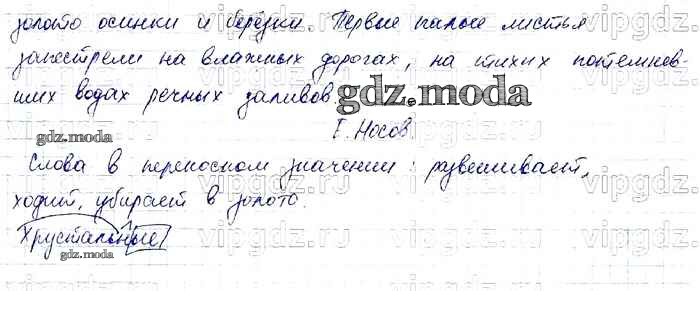 золото осинки и берёзки. Первые палые листья
запестрели на влажных дорогах, на тихих потемнев-
ших водах речных заливов.
gdz.moda
Е. Носов.
gdz.moda
Слова в переносном значении: развешивает,
ходит, убирает в золото.
Хрустальные
gdz.moda
vipgdz.ru